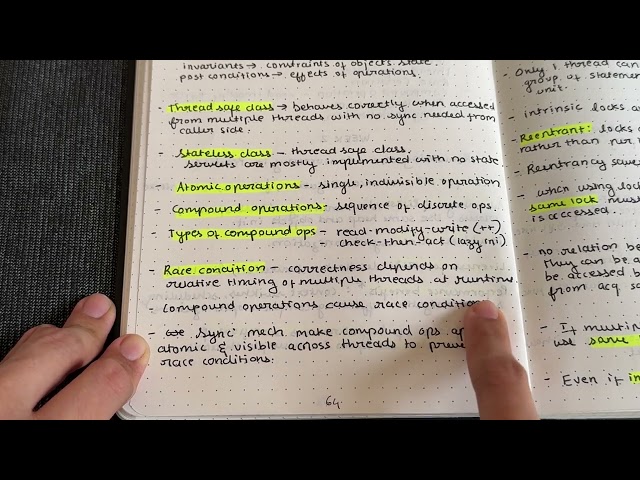 invariants → constraints of objects state.
post conditions → effects of operations.
- Thread safe class → behaves correctly when accessed
from multiple threads with no sync needed from
caller side.
- Stateless class - thread safe class.
servlets are mostly implemented with no state
- Atomic operations - single, indivisible operation
- Compound operations - sequence of discrete ops.
- Types of compound ops - read-modify-write (++)
- check-then-act (lazy ini)
- Race condition - correctness depends on
relative timing of multiple threads at runtime.
- Compound operations cause race condition
- sync mech make compound ops
atomic & visible across threads to
race conditions.
64
- Only 1 thread can
group of statemen
unit.
- intrinsic locks a
- Reentrant: locks
rather than per
- Reentrancy saves
- when using loc
same lock must
is accessed.
- no relation be
They can be a
be accessed b
from acq
- If multip
use same
- Even if in